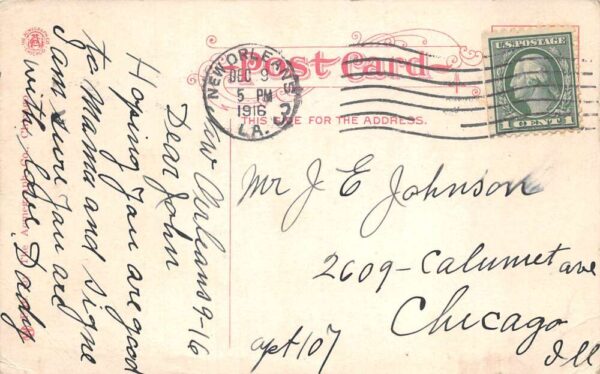 Post Card
THIS SIDE FOR THE ADDRESS.
NEW ORLEANS
DEC 9
5 PM
1916
LA.
U.S. POSTAGE
1 CENT 1
New Orleans 9-16
Dear John
Hoping you are good
to Mama and Signe
Jam sure you are
with love Dady
Mr J E Johnson
2609 - Calumet ave
Chicago
apt 107
Ill